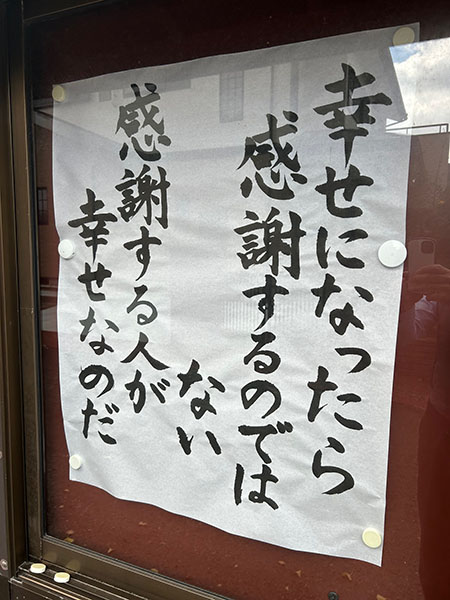 幸せになったら
感謝するのでは
ない
感謝する人が
幸せなのだ